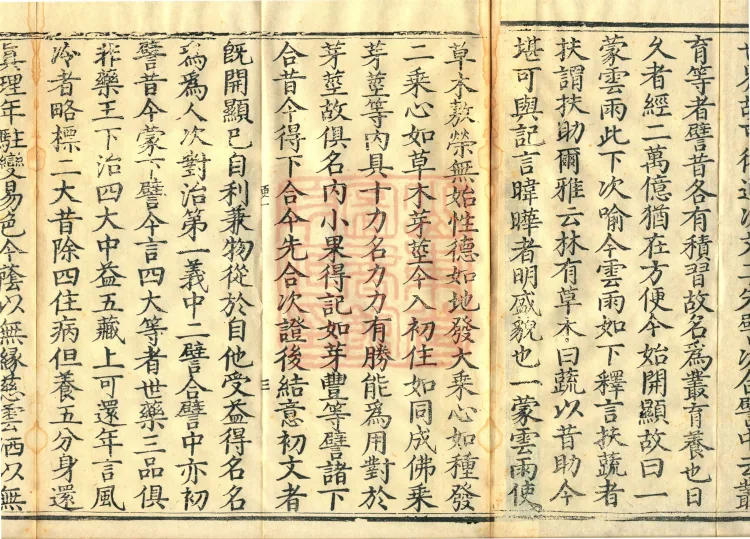 育等者譬昔各有積習故名為叢育養也日
久者經二萬億猶在方便今始開顯故曰一
蒙雲雨此下次喻今雲雨如下釋言扶蔬者
扶謂扶助爾雅云林有草木曰蔬以昔助今
堪可與記言暐曄者明盛貌也一蒙雲雨使
草木敷榮無始性德如地發大乘心如種發
二乘心如草木芽莖今入初住如同成佛乘
芽莖等內具十力名力力有勝能為用對於
芽莖故俱名內小果得記如芽豐等譬諸下
合昔今得下合今先合次證後結意初文者
既開顯已自利兼物從於自他受益得名名
為為人次對治第一義中二譬合譬中亦初
譬昔今蒙下譬今言四大等者世藥三品俱
非藥王下治四大中益五藏上可還年言風
冷者略標二大昔除四住病但養五分身還
真理年駐變易色今蔭以無緣慈雲洒以無